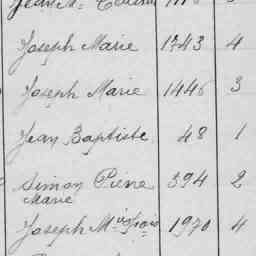 Joseph Marie 1743 4
Joseph Marie 1446 3
Jean Baptiste 48 1
Simon Pierre 394 2
Marie
Joseph M 1970 4